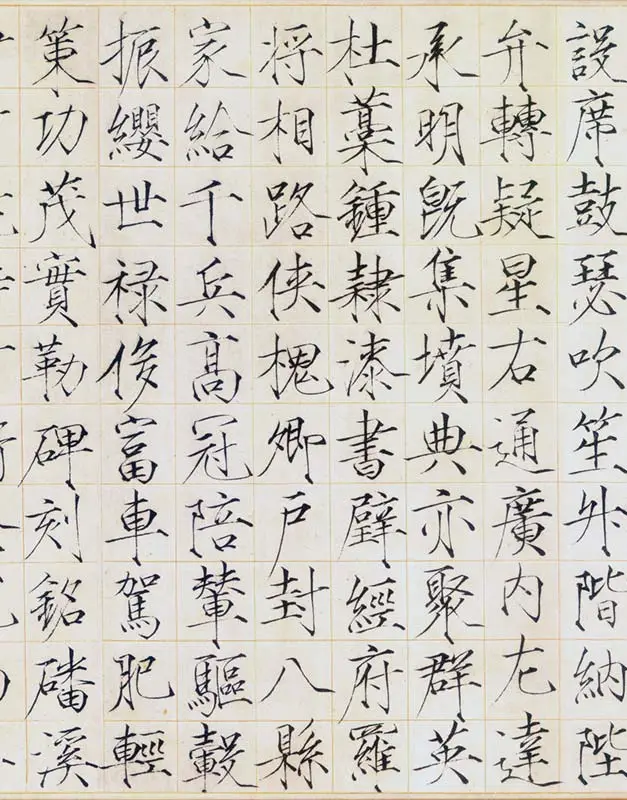 設席鼓瑟吹笙升階納陛
弁轉疑星右通廣内左達
承明既集墳典亦聚群英
杜藁鍾隸漆書壁經府羅
将相路俠槐卿戶封八縣
家給千兵高冠陪輦驅轂
振纓世禄侈富車駕肥輕
策功茂實勒碑刻銘磻溪